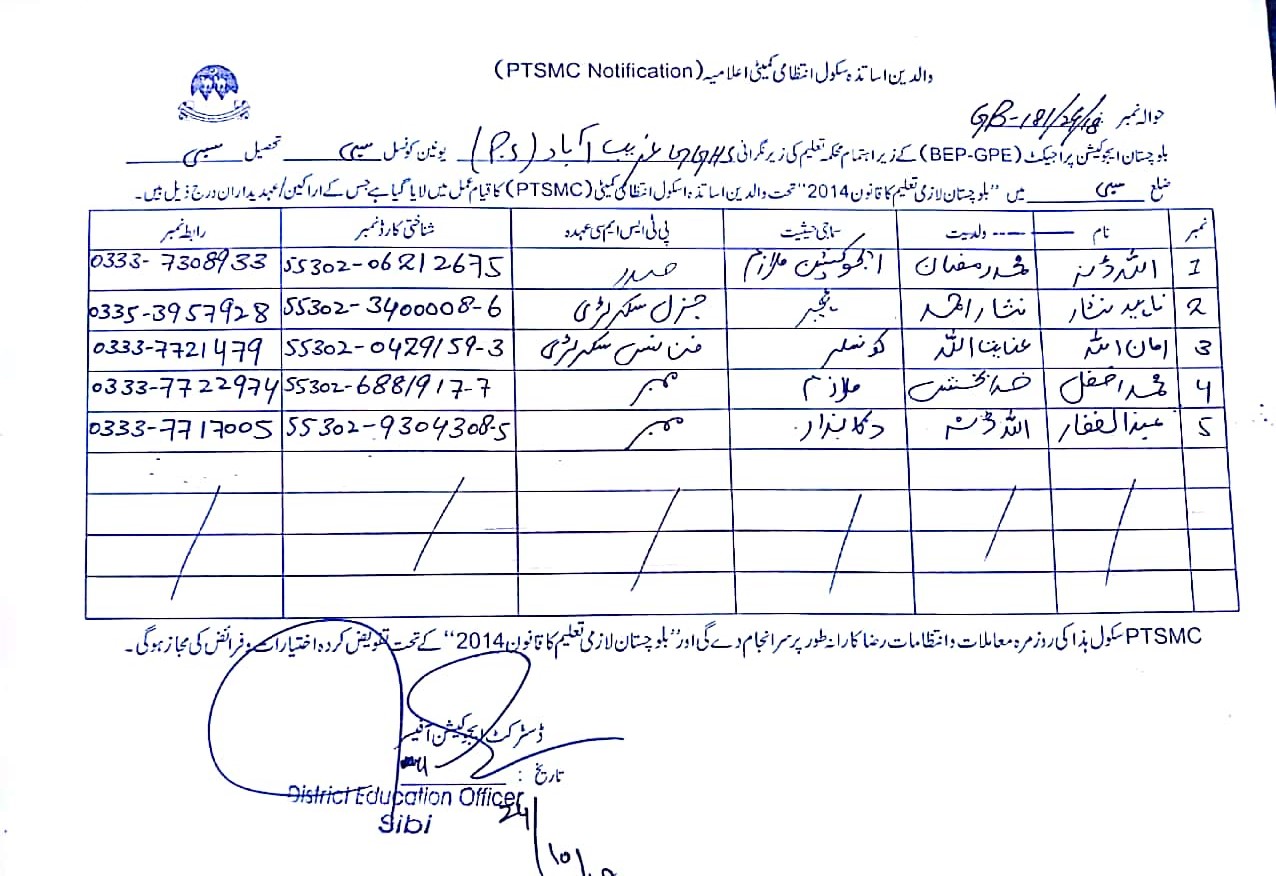 والدین اساتذہ سکول انتظامی کمیٹی اعلامیہ (PTSMC Notification)
حوالہ نمبر GB-181/24/18
بلوچستان ایجوکیشن پراجیکٹ (BEP-GPE) کے زیر اہتمام محکمہ تعلیم کی زیر نگرانی GGHS غریب آباد (P.S) یونین کونسل سبی تحصیل سبی
ضلع سبی میں "بلوچستان لازمی تعلیم کا قانون 2014" تحت والدین اساتذہ اسکول انتظامی کمیٹی (PTSMC) کا قیام عمل میں لایا گیا ہے جس کے اراکین/عہدیداران درج ذیل ہیں۔
نمبر نام ---- ولدیت سماجی حیثیت پی ٹی ایس ایم سی عہدہ شناختی کارڈ نمبر رابطہ نمبر
1 اللہ ڈنہ محمد رمضان ایجوکیشن ملازم صدر 55302-06212675 0333-7308933
2 ناہید نثار نثار احمد ٹیچر جنرل سیکرٹری 55302-3400008-6 0335-3957928
3 امان اللہ عنایت اللہ کونسلر فنانس سیکرٹری 55302-0429159-3 0333-7721479
4 محمد افضل خدابخش ملازم ممبر 55302-6881917-7 0333-7722974
5 عبدالغفار اللہ ڈنہ دکاندار ممبر 55302-9304308-5 0333-7717005
PTSMC سکول ہذا کی روزمرہ معاملات و انتظامات رضا کارانہ طور پر سرانجام دے گی اور "بلوچستان لازمی تعلیم کا قانون 2014" کے تحت تفویض کردہ اختیارات و فرائض کی مجاز ہوگی۔
ڈسٹرکٹ ایجوکیشن آفیسر
تاریخ :
District Education Officer
Sibi
24/10/18